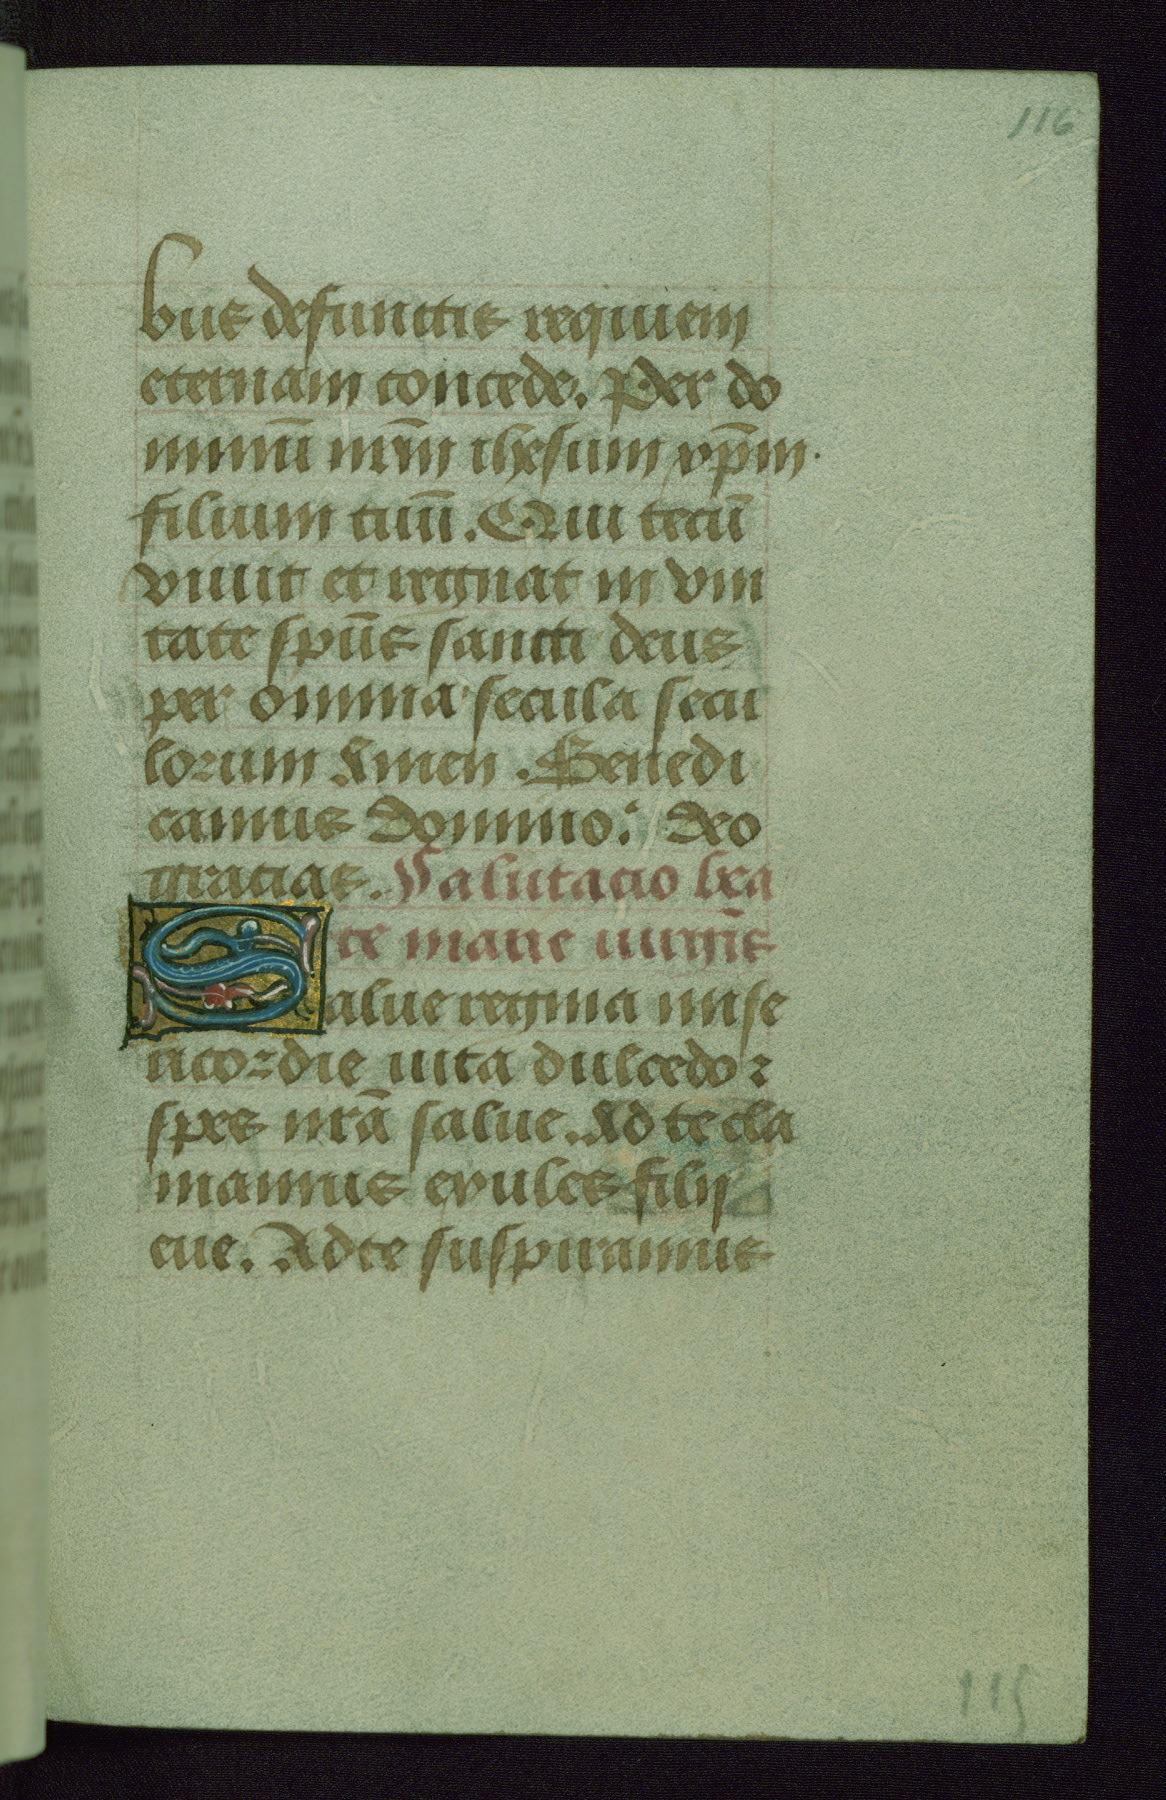 116
bus defunctis requiem
eternam concede. Per do
minuū nr̄m ihesum xp̄m.
filium tuū. Qui tecū
viuit et regnat in vni
tate sp̄us sancti deus
per omnia secula secu
lorum Amen. Benedi
camus Domino. Deo
gracias. Salutacio bea
te marie uirgīs
Salue regina mise
ricordie uita dulcedo ⁊
spes nr̄a salue. Ad te cla
mamus exules filij
eue. Ad te suspiramus
115